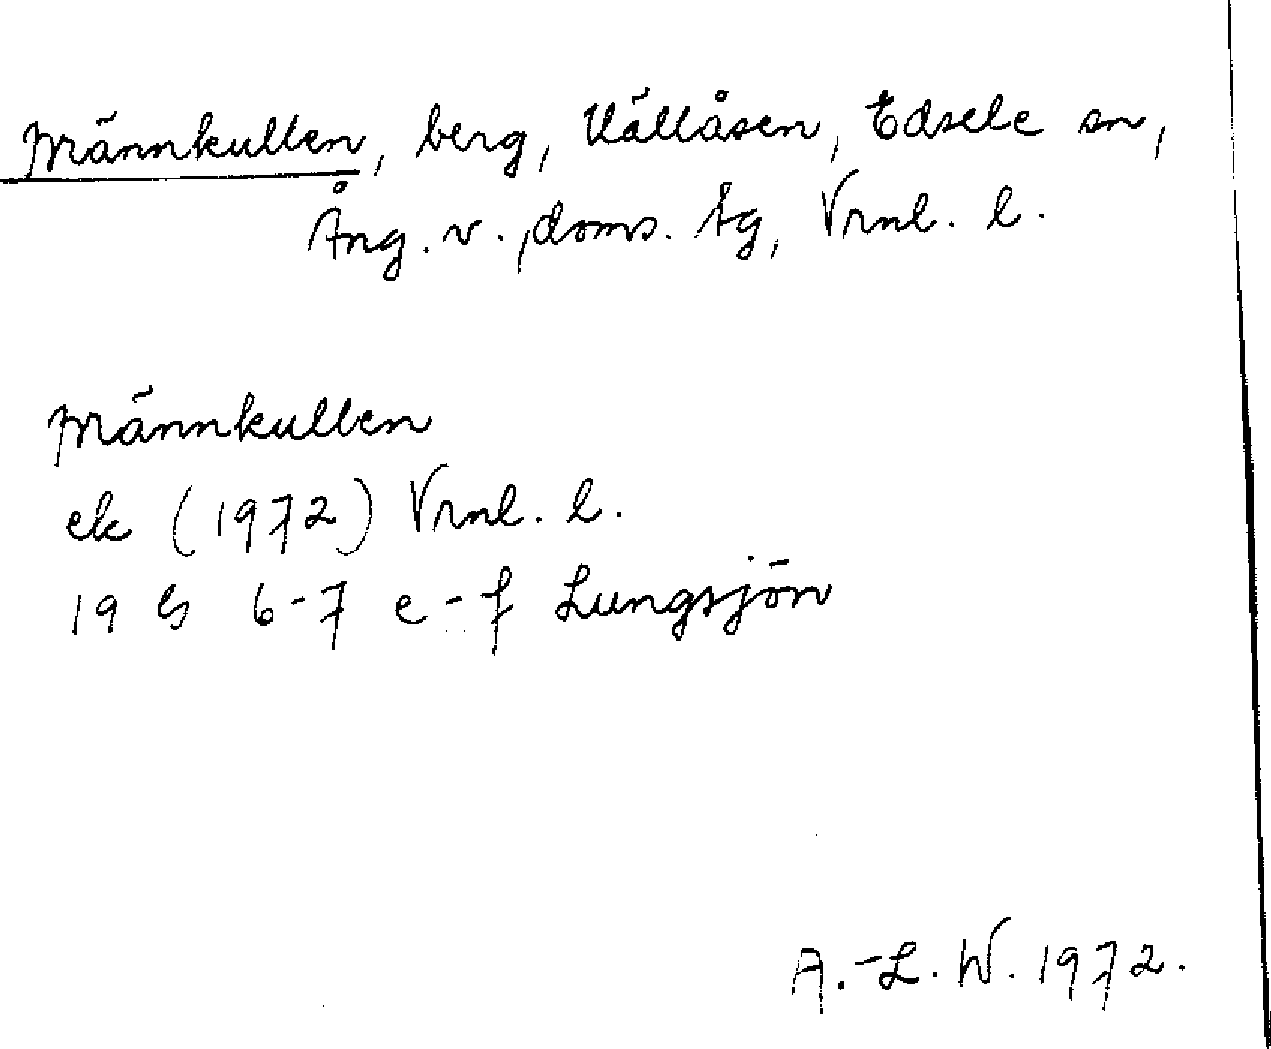 Männkullen, berg, Vällåsen, Edsele sn,
Ång. v., doms. tg, Vrnl. l.
Männkullen
ek (1972) Vrnl. l.
19 G 6-7 e-f Lungsjön
A.-L. W. 1972.